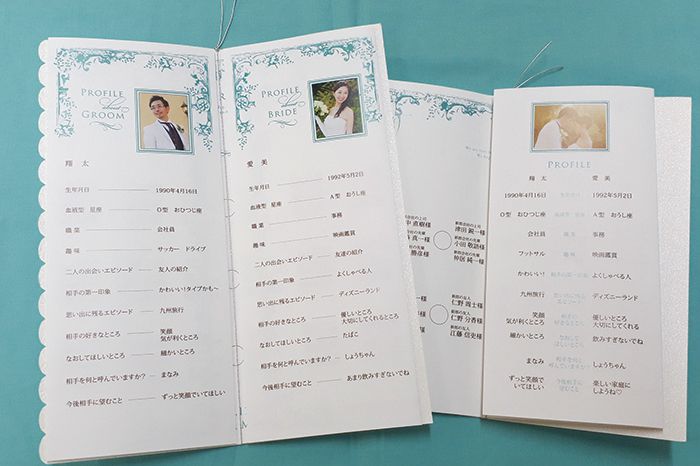 PROFILE
GROOM
翔 太
生年月日 1990年4月16日
血液型 星座 O型 おひつじ座
職 業 会社員
趣 味 サッカー ドライブ
二人の出会いエピソード 友人の紹介
相手の第一印象 かわいい!タイプかも〜
思い出に残るエピソード 九州旅行
相手の好きなところ 笑顔
気が利くところ
なおしてほしいところ 細かいところ
相手を何と呼んでいますか? まなみ
今後相手に望むこと ずっと笑顔でいてほしい
PROFILE
BRIDE
愛 美
生年月日 1992年5月2日
血液型 星座 A型 おうし座
職 業 事務
趣 味 映画鑑賞
二人の出会いエピソード 友達の紹介
相手の第一印象 よくしゃべる人
思い出に残るエピソード ディズニーランド
相手の好きなところ 優しいところ
大切にしてくれるところ
なおしてほしいところ たばこ
相手を何と呼んでいますか? しょうちゃん
今後相手に望むこと あまり飲みすぎないでね
新郎会社の上司
津田 鋭一様
新郎会社の先輩
小田 敬語様
新郎会社の先輩
仲居 純一様
新郎の友人
仁野 周士様
新郎の友人
仁野 分香様
新郎の友人
江藤 信宏様
PROFILE
翔 太 愛 美
1990年4月16日 生年月日 1992年5月2日
O型 おひつじ座 血液型 星座 A型 おうし座
会社員 職 業 事務
フットサル 趣 味 映画鑑賞
かわいい! 相手の第一印象 よくしゃべる人
九州旅行 思い出に残るエピソード ディズニーランド
笑顔
気が利くところ 相手の好きなところ 優しいところ
大切にしてくれるところ
細かいところ なおしてほしいところ 飲みすぎないでね
まなみ 相手を何と呼んでいますか? しょうちゃん
ずっと笑顔でいてほしい 今後相手に望むこと 楽しい家庭にしようね♡